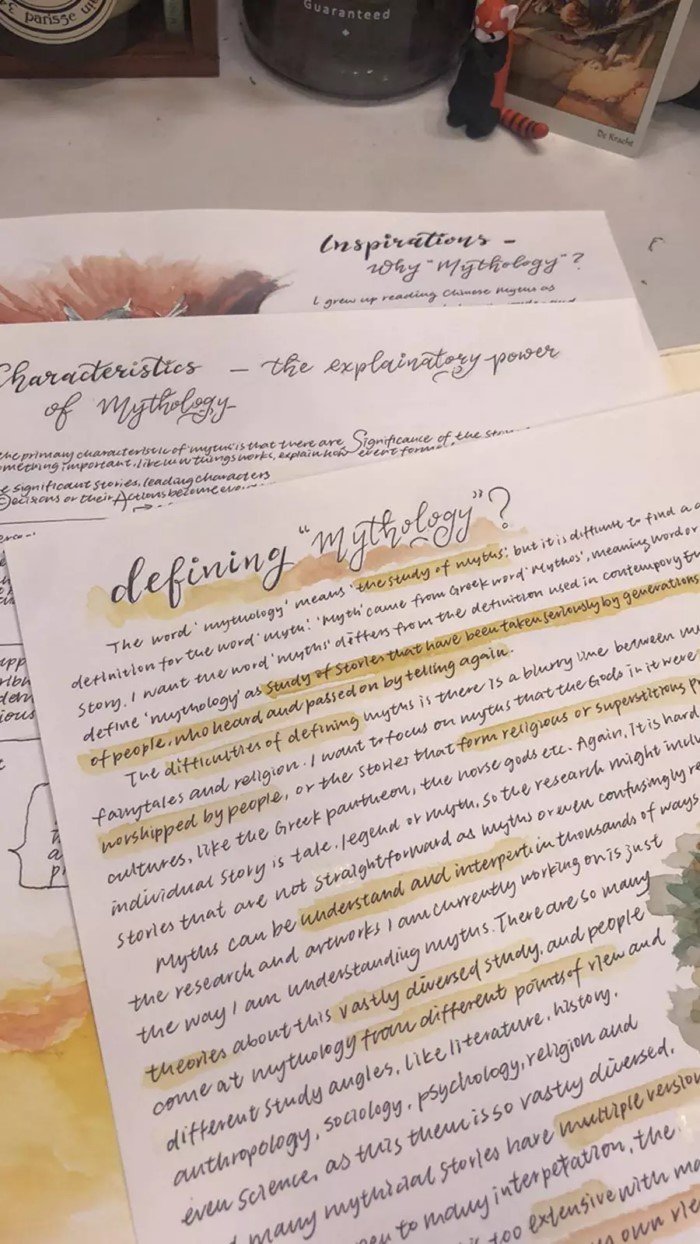 parisse
Guaranteed
De Kracht
Inspirations -
Why "Mythology"?
I grew up reading Chinese myths as
Characteristics - the explainatory power
of Mythology
the primary characteristic of myths is that there are Significance of the
something important, like how things works, explain how event
significant stories, leading characters
Decisions or their Actions become
defining "Mythology"?
The word 'mythology' means 'the study of myths', but it is difficult to find a
definition for the word 'myth'. 'Myth' came from Greek word 'Mythos', meaning word or
story. I want the word 'myths' differs from the definition used in contemporary
define 'mythology' as study of stories that have been taken seriously by generations
of people, who heard and passed on by telling again.
The difficulties of defining myths is there is a blurry line between
fairytales and religion. I want to focus on myths that the Gods in it were
worshipped by people, or the stories that form religious or superstitious
cultures, like the Greek pantheon, the norse gods etc. Again, it is hard
individual story is tale, legend or myth, so the research might
stories that are not straightforward as myths or even confusingly
Myths can be understand and interpert in thousands of ways
the research and artworks I am currently working on is just
the way I am understanding myths. There are so many
theories about this vastly diversed study, and people
come at mythology from different points of view and
different study angles, like literature, history,
anthropology, sociology, psychology, religion and
even science, as this them is so vastly diversed,
many mythical stories have multiple
to many interpetation, the
too extensive with
own